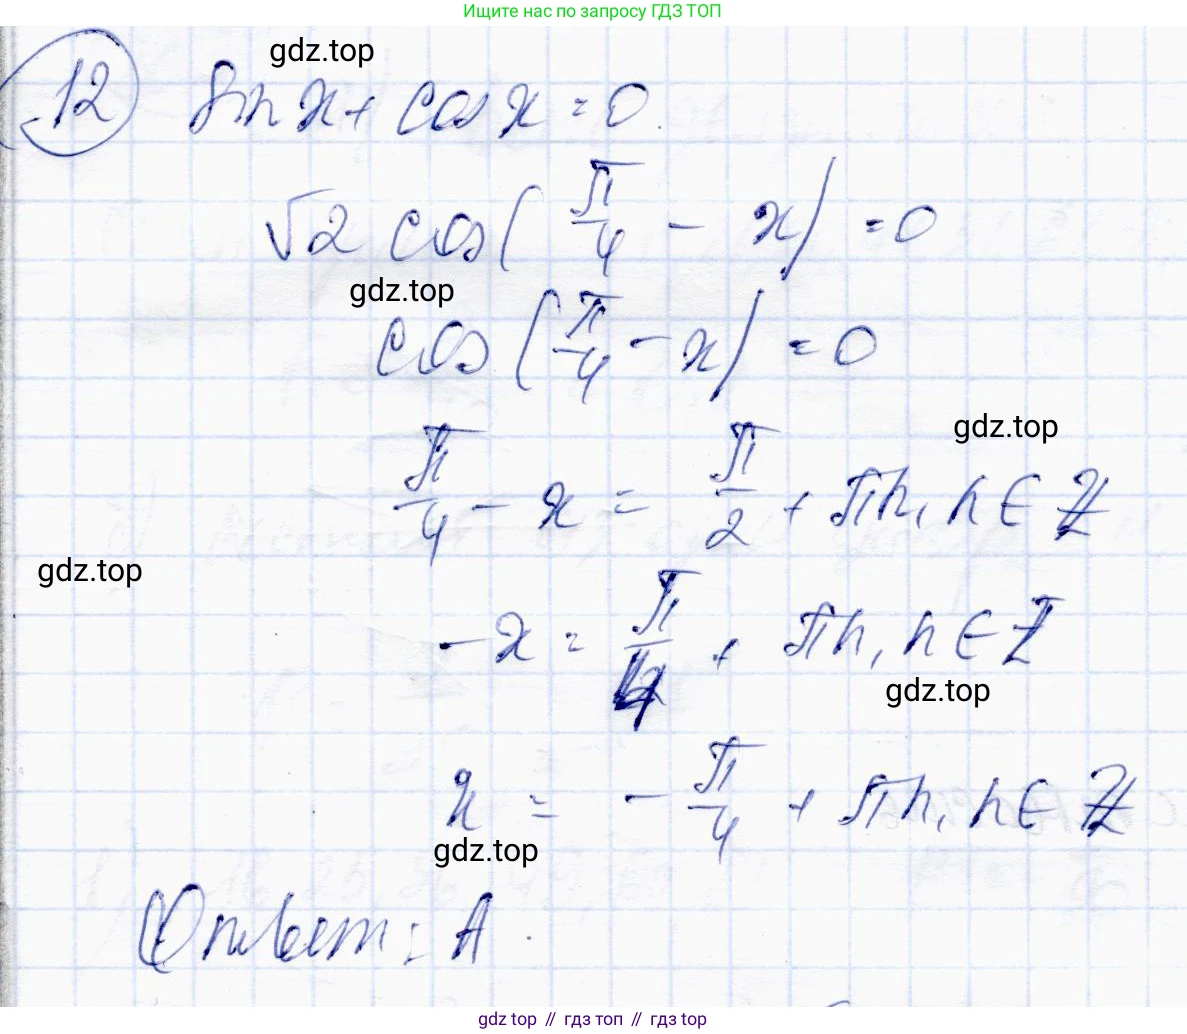 Ищите нас по запросу ГДЗ ТОП
gdz.top
12 sin x + cos x = 0.
√2 cos(π/4 - x) = 0
gdz.top
cos(π/4 - x) = 0
gdz.top
π/4 - x = π/2 + πn, n ∈ Z
gdz.top
-x = π/4 + πn, n ∈ Z
gdz.top
x = -π/4 + πn, n ∈ Z
gdz.top
Ответ: А.
gdz top // гдз топ // gdz top